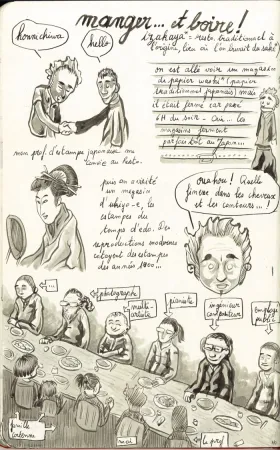 manger... et boire!
konnichiwa
hello
izakaya = resto traditionnel à
l'origine, lieu où l'on buvait du saké
on est allé voir un magasin
de papier washi (papier
traditionnel japonais) mais
il était fermé car passé
6H du soir - Oui... les
magasins ferment
parfois tôt au Japon...
mon prof d'estampe japonaise m'a
au resto.
puis on a visité
un magasin
d'ukiyo-e, les
estampes du
temps d'edo. Des
reproductions modernes
côtoyent des estampes
des années 1800...
ouahou! Quelle
finesse dans les cheveux
et les contours...!
...
photographe
multi-
artiste
pianiste
ingénieur
compositeur
employé
public
famille
coréenne
moi
le prof